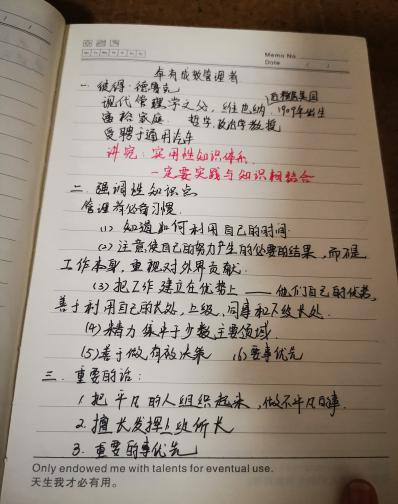 Memo No.
Date
卓有成效管理者
一. 彼得·德鲁克
现代管理学之父, 维也纳, 1909年出生
移居美国
家庭. 哲学, 政治学教授
受聘于通用汽车
讲究: 实用性知识体系.
一定要实践与知识相结合
二. 强调性知识点
管理者必备习惯.
(1) 知道如何利用自己的时间
(2) 注意使自己的努力产生的必要的结果, 而不是
工作本身, 重视对外界贡献.
(3) 把工作建立在优势上 —— 他们自己的优势,
善于利用自己的长处, 上级, 同事和下级长处.
(4) 精力集中于少数主要领域.
(5) 善于做有效决策 (6) 要事优先
三. 重要的话:
1. 把平凡的人组织起来, 做不平凡的事.
2. 擅长发挥上级所长
3. 重要的事优先
Only endowed me with talents for eventual use.
天生我才必有用。